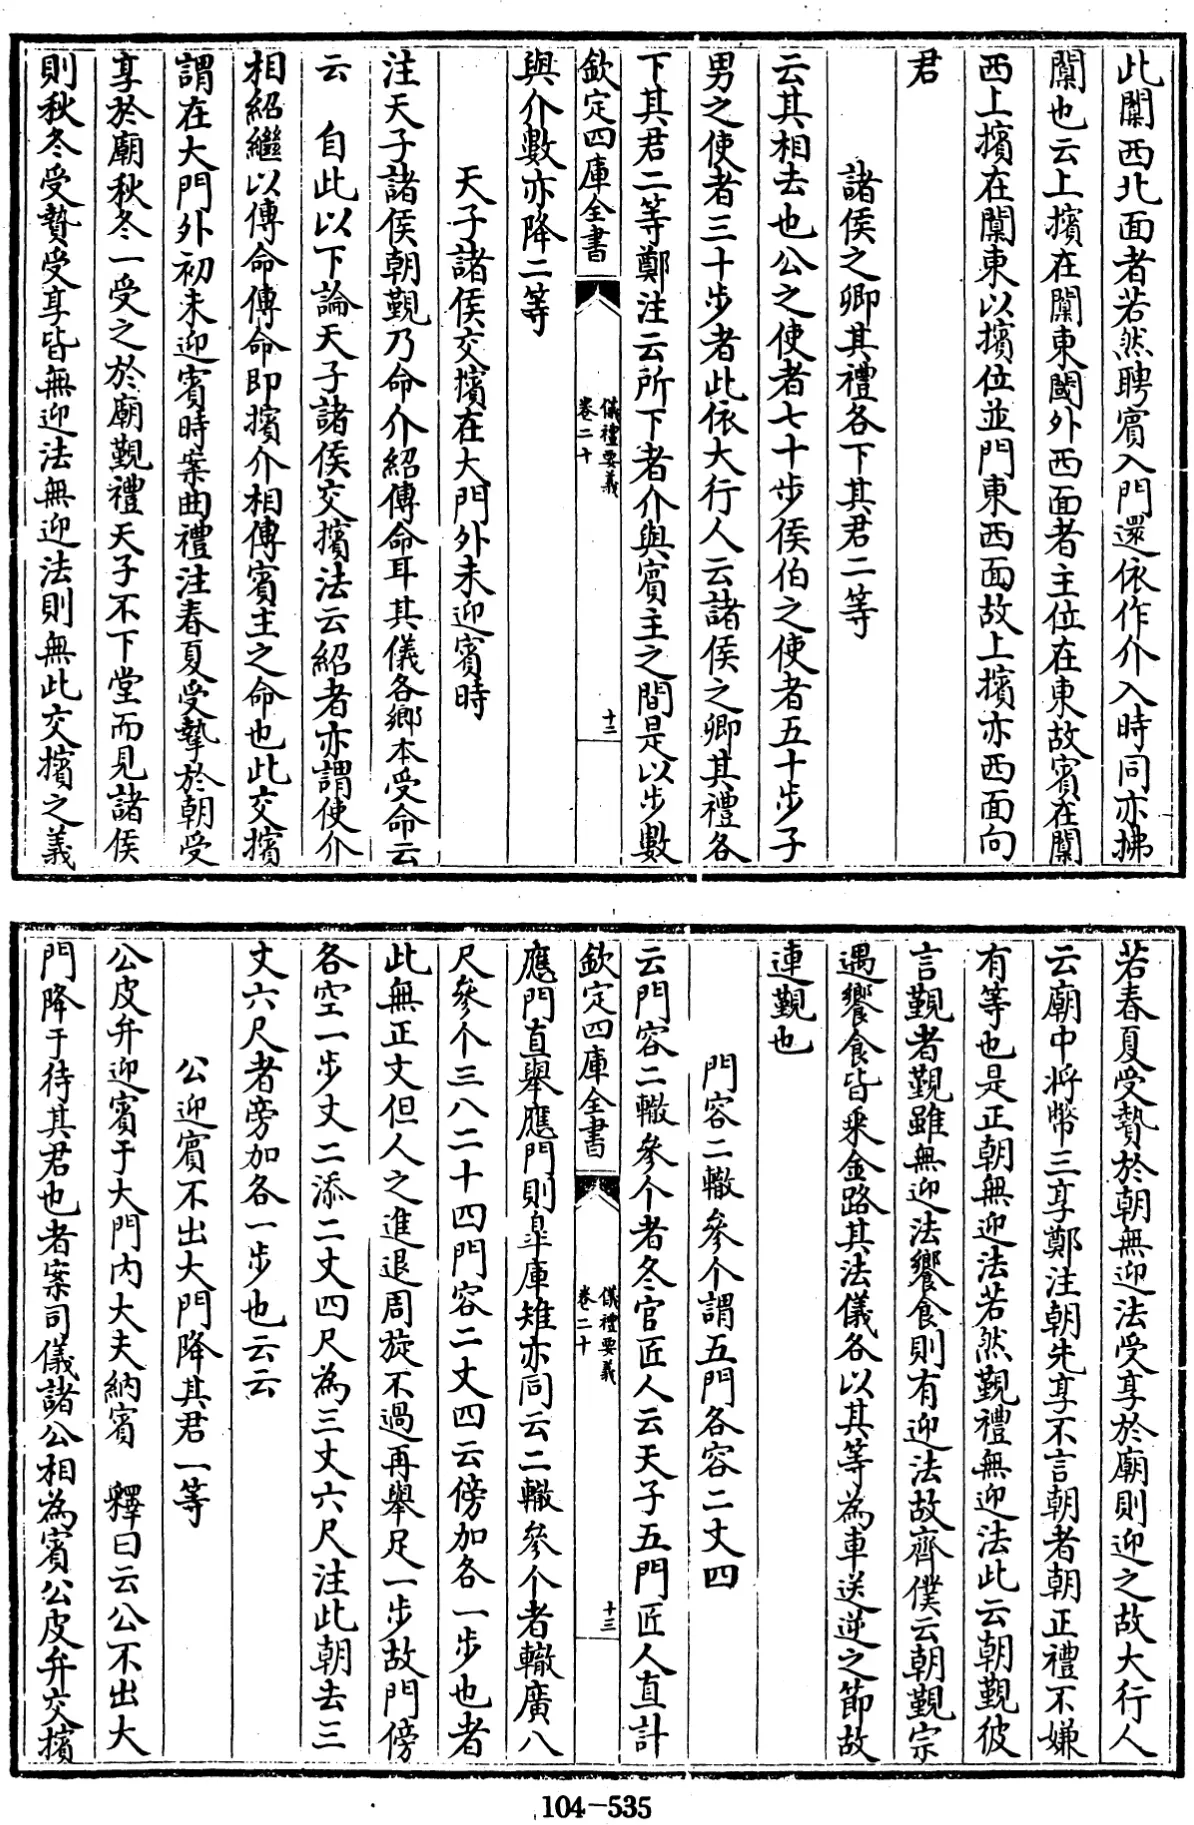 此闑西北面者若然聘賓入門還依作介入時同亦拂
闑也云上擯在闑東閾外西面者主位在東故賓在闑
西上擯在闑東以擯位並門東西面故上擯亦西面向
君
諸侯之卿其禮各下其君二等
云其相去也公之使者七十步侯伯之使者五十步子
男之使者三十步者此依大行人云諸侯之卿其禮各
下其君二等鄭注云所下者介與賓主之間是以步數
欽定四庫全書
儀禮要義
卷二十
十二
與介數亦降二等
天子諸侯交擯在大門外未迎賓時
注天子諸侯朝覲乃命介紹傳命耳其儀各鄉本受命云
云 自此以下論天子諸侯交擯法云紹者亦謂使介
相紹繼以傳命傳命即擯介相傳賓主之命也此交擯
謂在大門外初未迎賓時案曲禮注春夏受摯於朝受
享於廟秋冬一受之於廟覲禮天子不下堂而見諸侯
則秋冬受贄受享皆無迎法無迎法則無此交擯之義
若春夏受贄於朝無迎法受享於廟則迎之故大行人
云廟中將幣三享鄭注朝先享不言朝者朝正禮不嫌
有等也是正朝無迎法若然覲禮無迎法此云朝覲彼
言覲者覲雖無迎法饗食則有迎法故齊僕云朝覲宗
遇饗食皆乘金路其法儀各以其等為車送逆之節故
連覲也
門容二轍參个謂五門各容二丈四
云門容二轍參个者冬官匠人云天子五門匠人直計
欽定四庫全書
儀禮要義
卷二十
十三
應門直舉應門則臯庫雉亦同云二轍參个者轍廣八
尺參个三八二十四門容二丈四云傍加各一步也者
此無正丈但人之進退周旋不過再舉足一步故門傍
各空一步丈二添二丈四尺為三丈六尺注此朝去三
丈六尺者旁加各一步也云云
公迎賓不出大門降其君一等
公皮弁迎賓于大門內大夫納賓 釋曰云公不出大
門降于待其君也者案司儀諸公相為賓公皮弁交擯
104-535